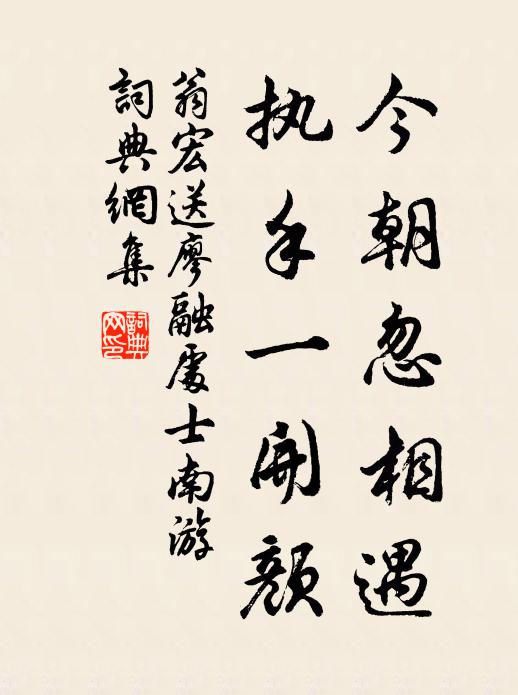 今朝忽相遇
执手一開顔
翁宏送廖融處士南游
詞典網集
詞典网印